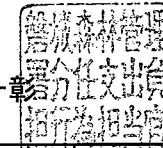 彰
磐城森林管理
署分任支出負
担行為担当官